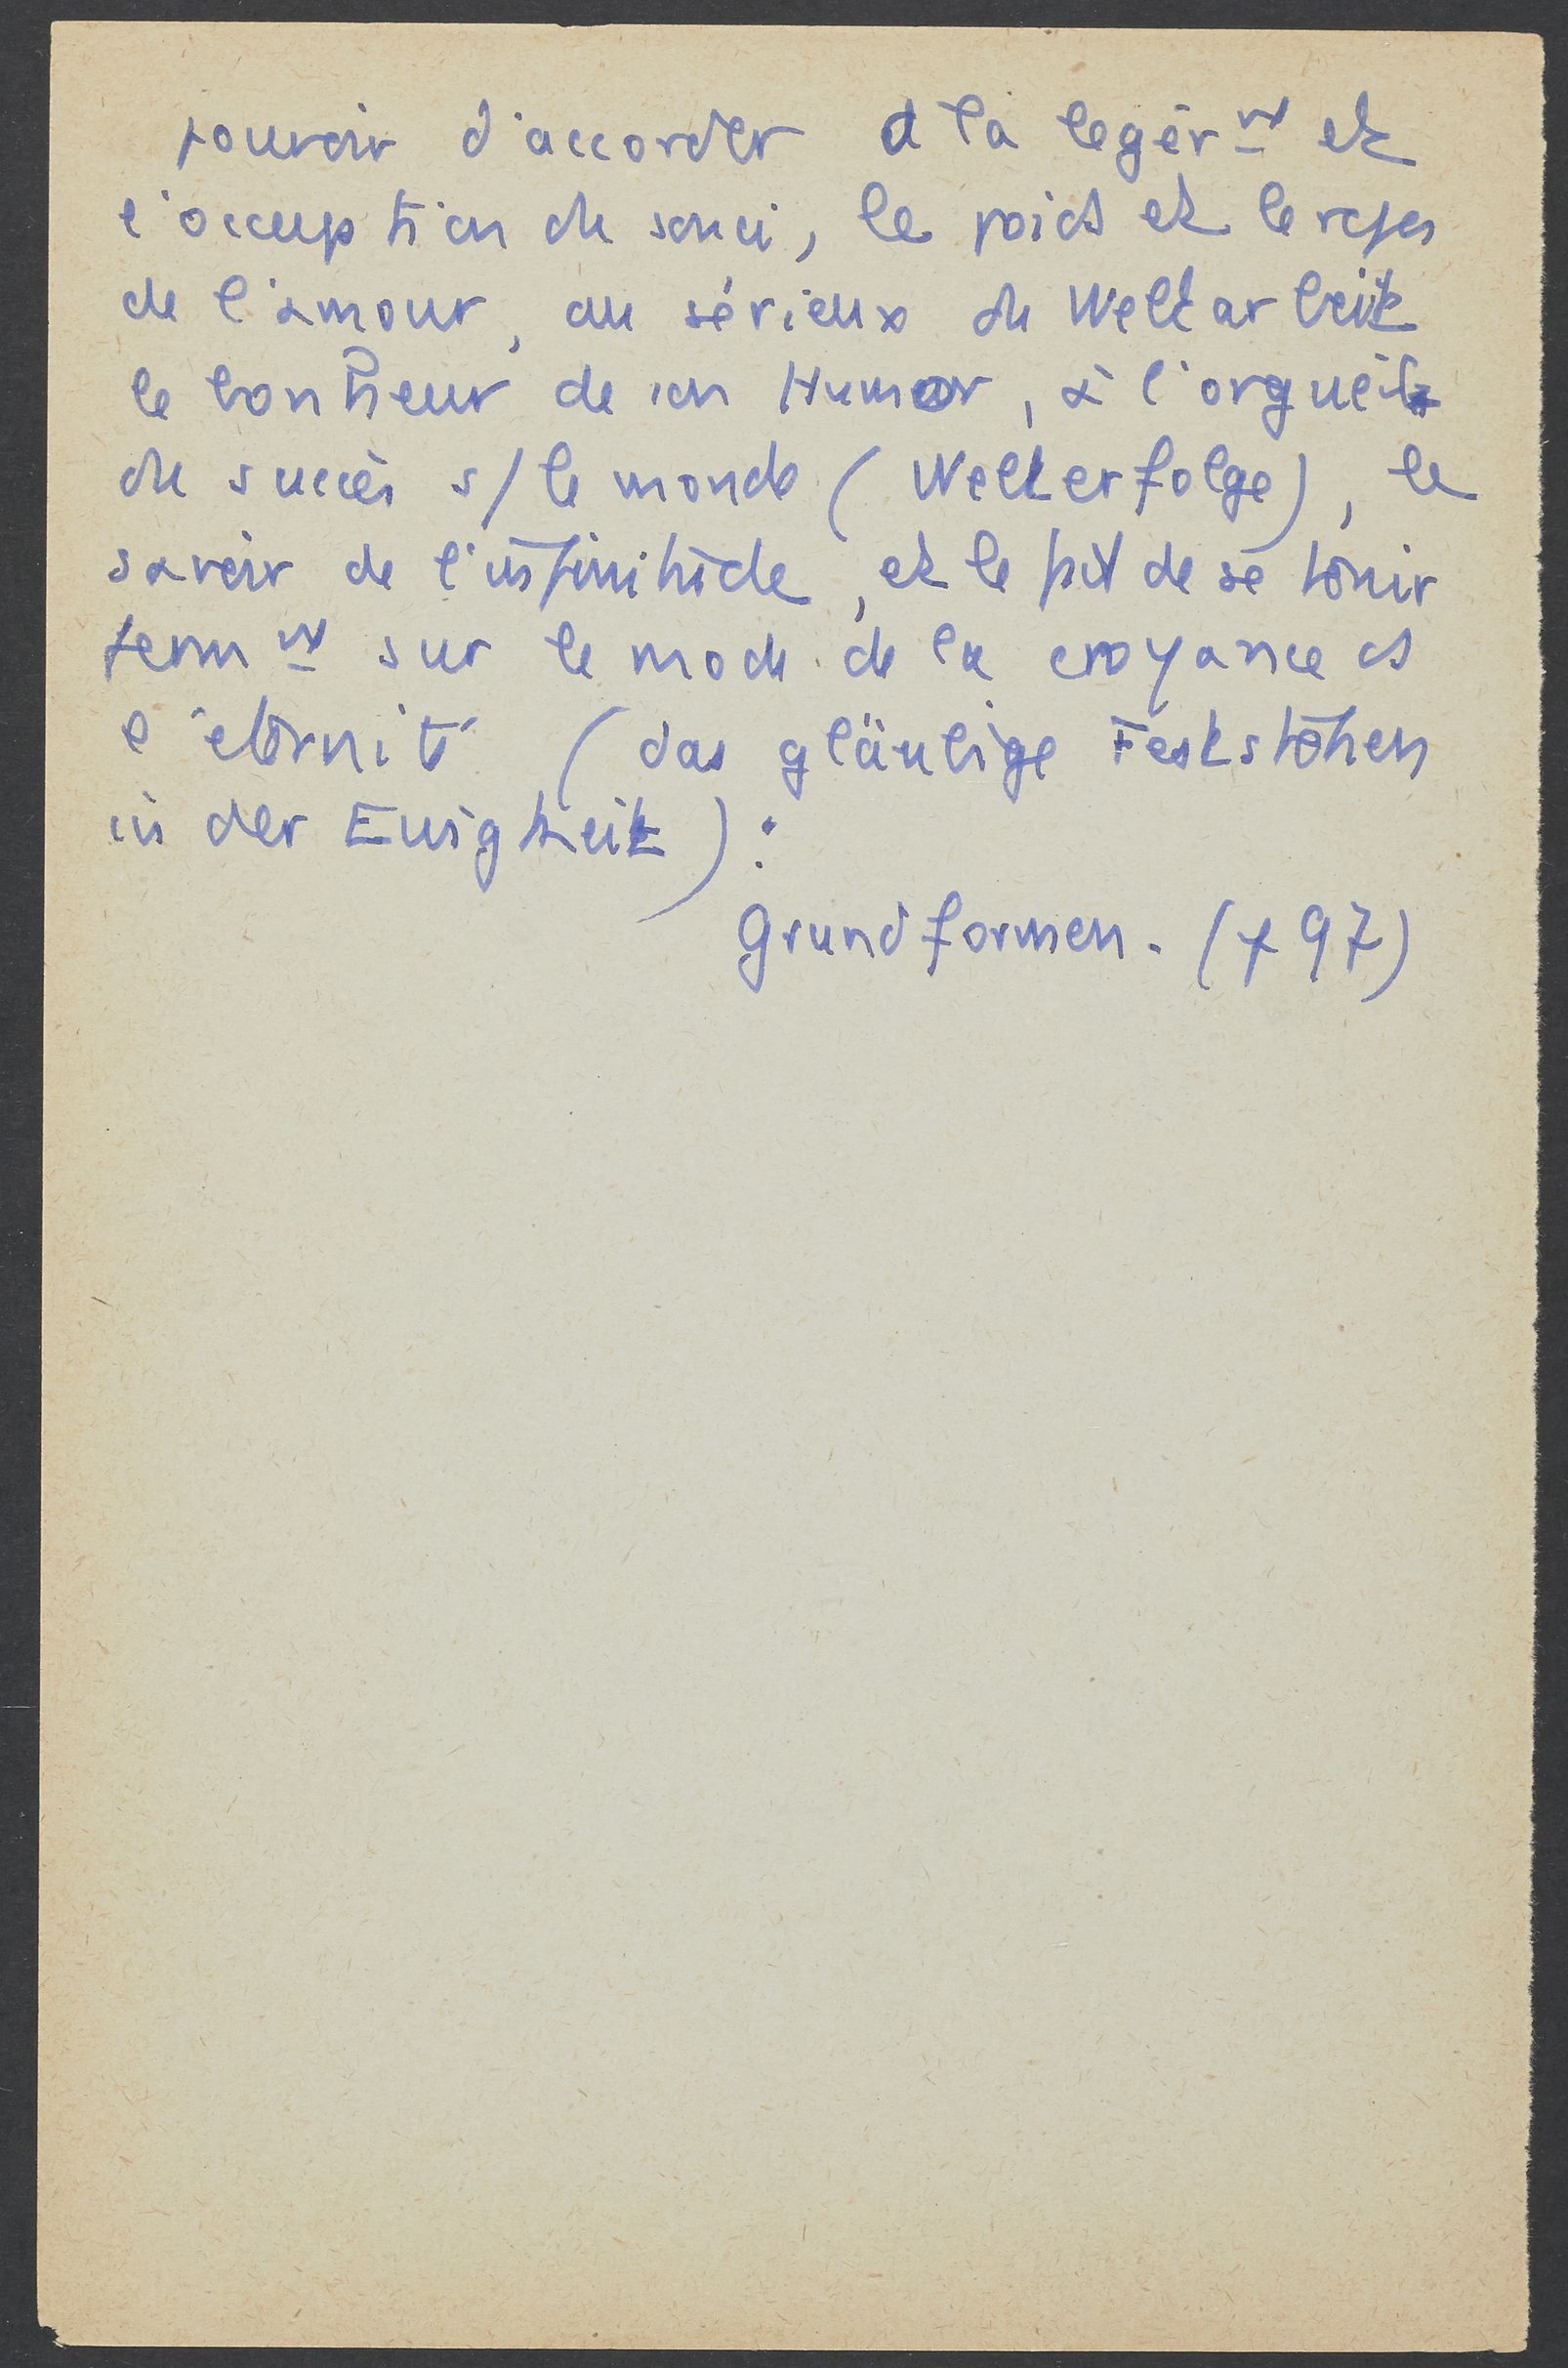 pouvoir d'accorder à la légèrmt et
l'occuption du souci, le poids et le repos
de l'amour, au sérieux du Weltarbeit
le bonheur de son Humor, à l'orgueil
du succès s/ le monde (Welterfolge), le
savoir de l'infinitude, et le fait de se tenir
fermmt sur le mode de la croyance ds
l'éternité (das gläubige Feststehen
in der Ewigkeit):
Grundformen. (497)